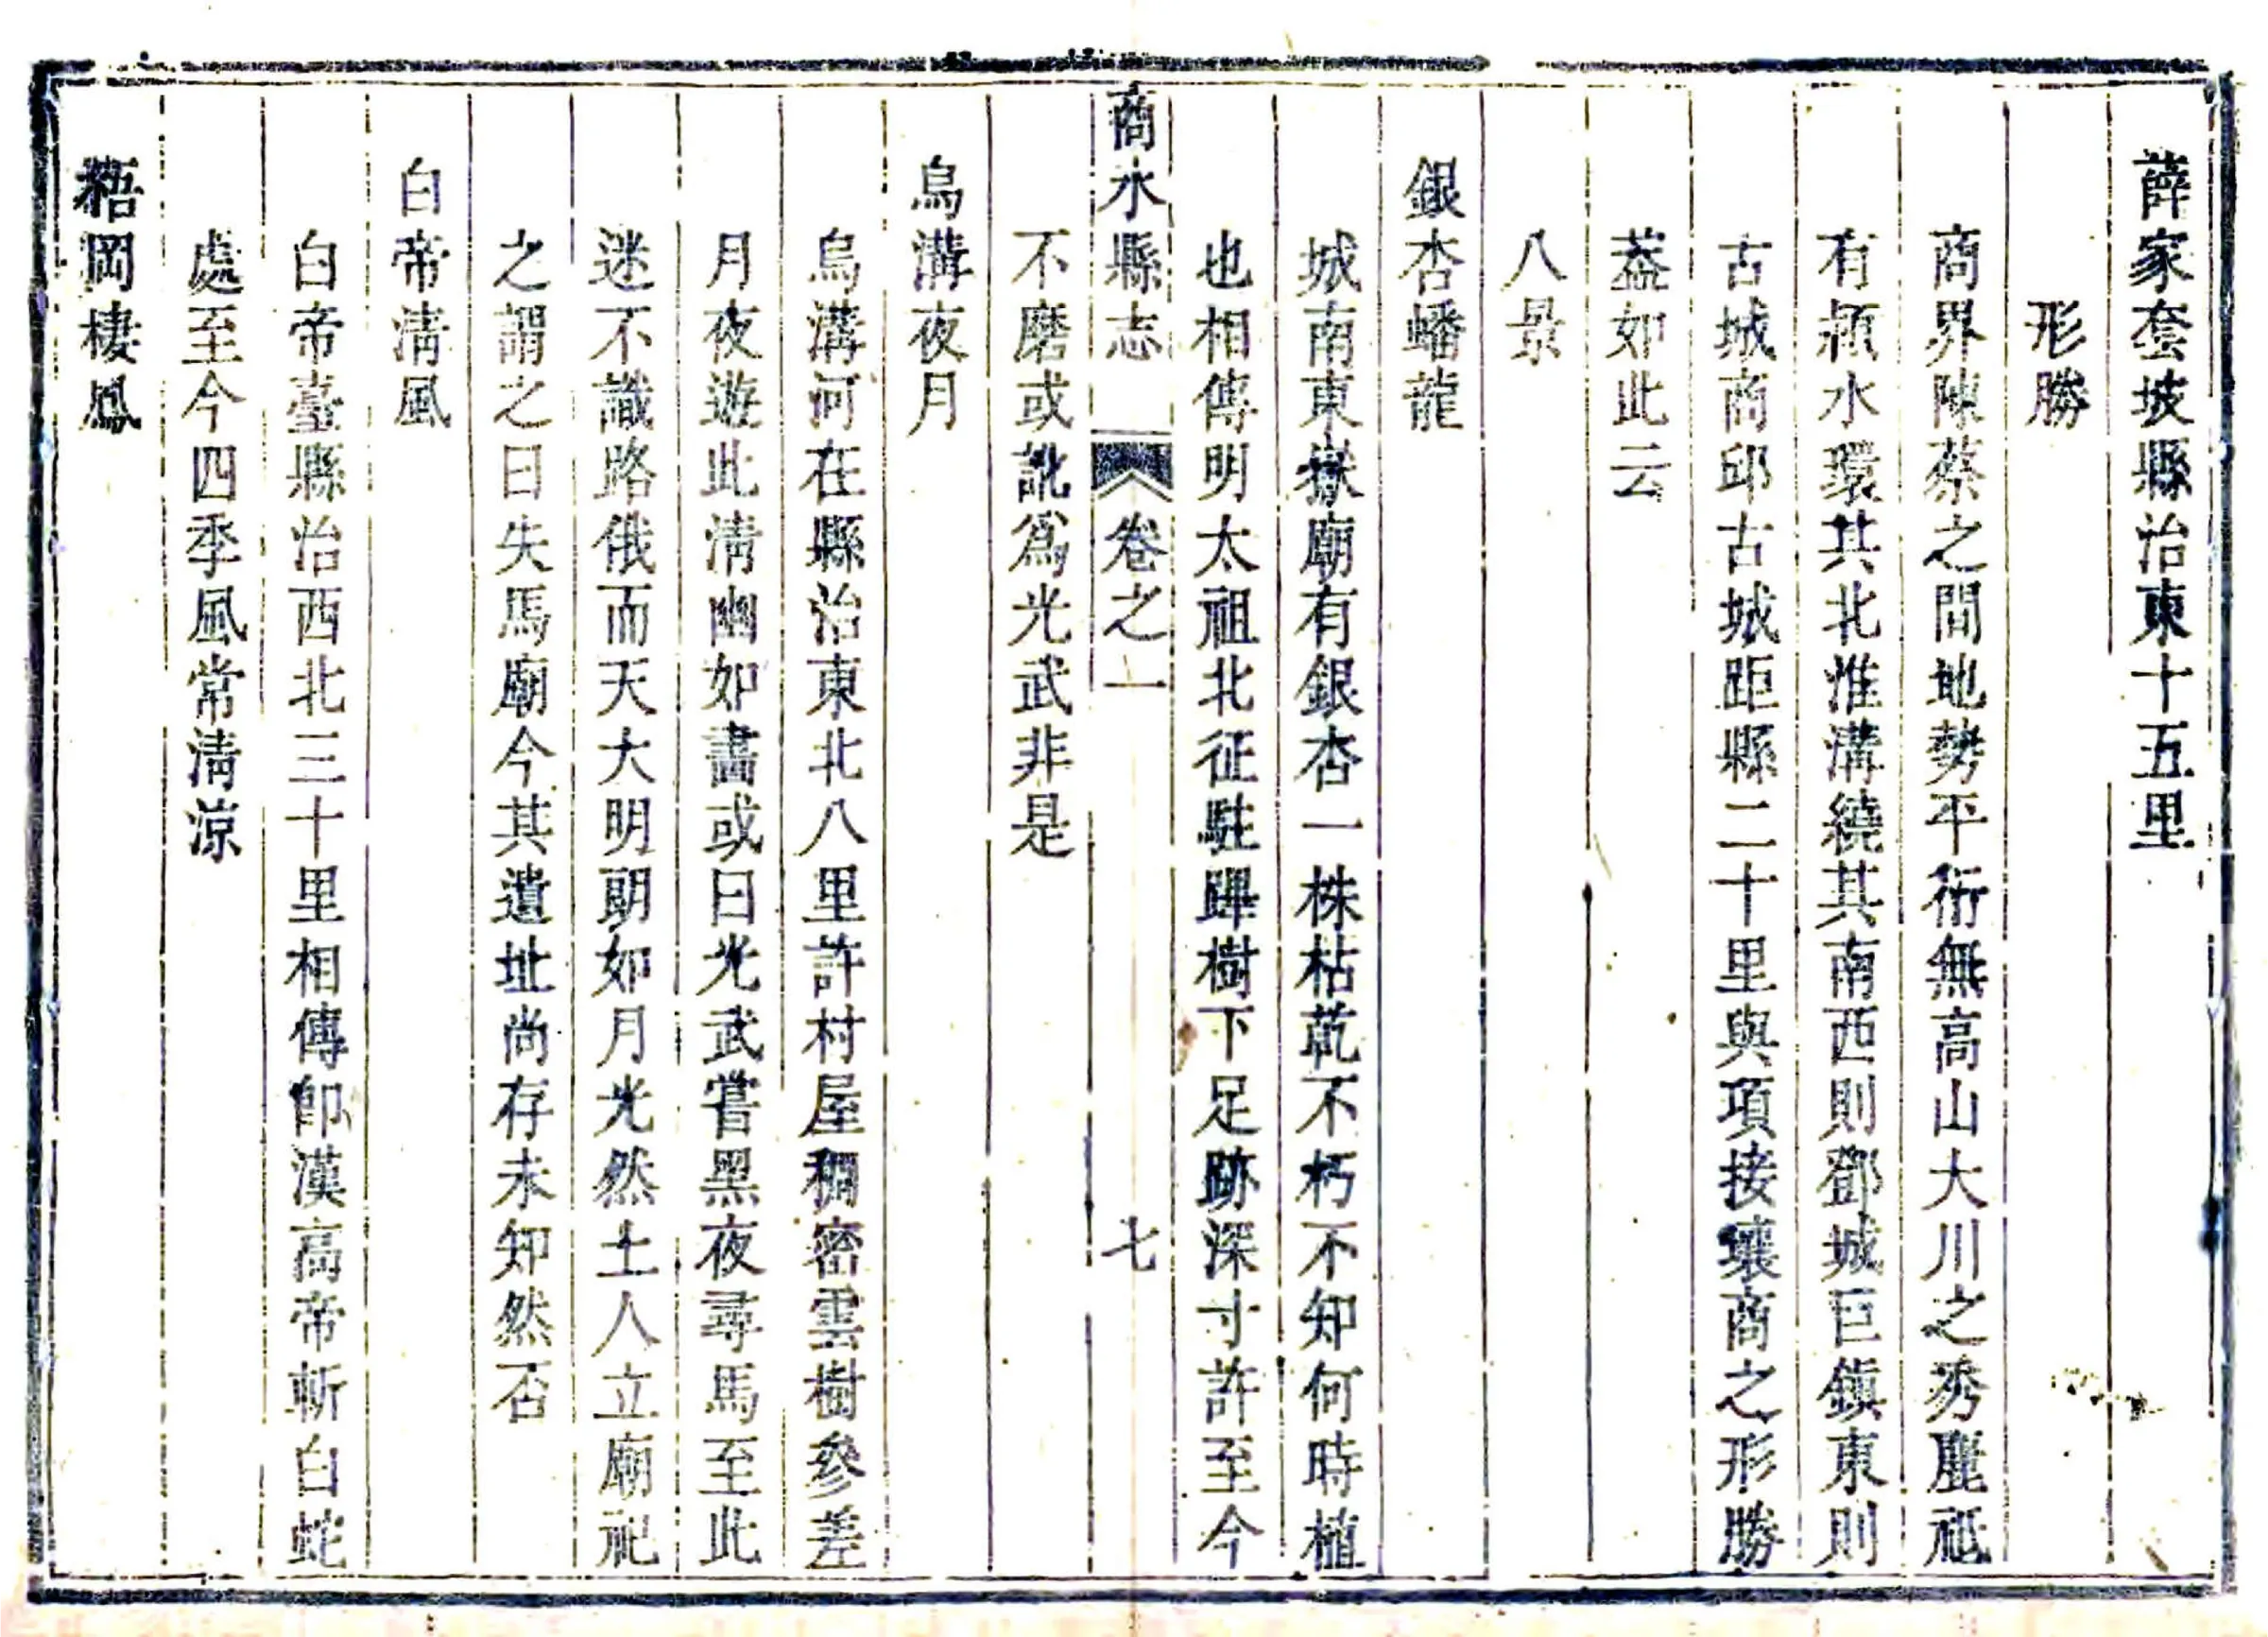 薛家套坡縣治東十五里
形勝
商界陳蔡之間地勢平衍無高山大川之秀麗祗
有潁水環其北淮溝繞其南西則鄧城巨鎮東則
古城商邱古城距縣二十里與項接壤商之形勝
葢如此云
八景
銀杏蟠龍
城南東嶽廟有銀杏一株枯乾不朽不知何時植
也相傳明太祖北征駐蹕樹下足跡深寸許至今
商水縣志 卷之一 七
不磨或訛爲光武非是
烏溝夜月
烏溝河在縣治東北八里許村屋稠密雲樹參差
月夜遊此淸幽如畵或曰光武嘗黑夜尋馬至此
迷不識路俄而天大明朗如月光然土人立廟祀
之謂之曰失馬廟今其遺址尚存未知然否
白帝淸風
白帝臺縣治西北三十里相傳卽漢高帝斬白蛇
處至今四季風常淸涼
梧岡棲鳳